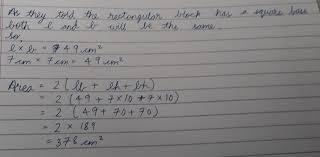 As they told the rectangular block has a square base
both l and b will be the same.
So,
l x b = 49 cm²
7 cm x 7 cm = 49 cm²
Area = 2 (lb + lh + bh)
= 2 (49 + 7 x 10 + 7 x 10)
= 2 (49 + 70 + 70)
= 2 x 189
= 378 cm²